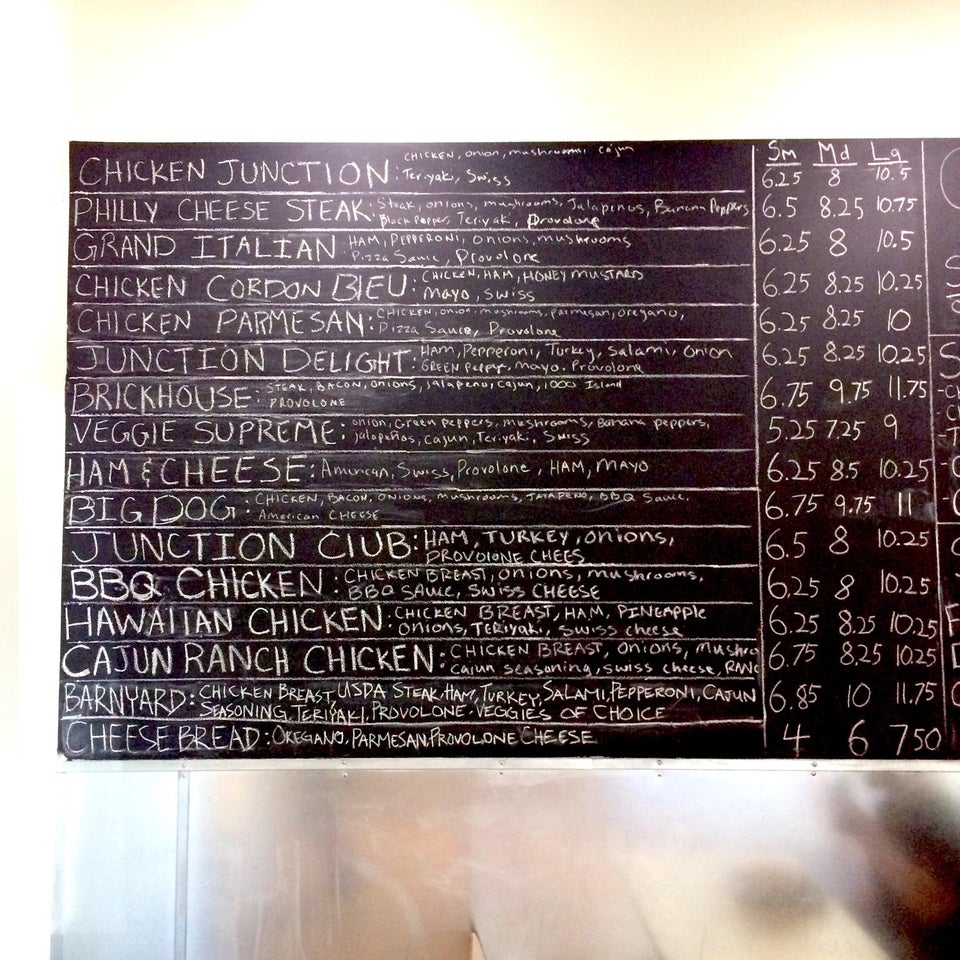 Sm Md Lg
CHICKEN JUNCTION: CHICKEN, onion, mushrooms, cajun
Teriyaki, Swiss 6.25 8 10.5
PHILLY CHEESE STEAK: Steak, onions, mushrooms, Jalapenos, Banana Peppers
Black Peppers, Teriyaki, Provolone 6.5 8.25 10.75
GRAND ITALIAN HAM, PEPPERONI, onions, mushrooms
Pizza Sauce, Provolone 6.25 8 10.5
CHICKEN CORDON BlEU: CHICKEN, HAM, HONEY MUSTARD
Mayo, Swiss 6.25 8.25 10.25
CHICKEN PARMESAN: CHICKEN, onion, mushrooms, parmesan, oregano,
Pizza Sauce, Provolone 6.25 8.25 10
JUNCTION DELIGHT: Ham, Pepperoni, Turkey, Salami, onion
GREEN Pepper, mayo, Provolone 6.25 8.25 10.25
BRICKHOUSE: STEAK, BACON, onions, jalapeno, cajun, 1000 Island
PROVOLONE 6.75 9.75 11.75
VEGGIE SUPREME: onion, Green peppers, mushrooms, Banana peppers,
jalapeños, Cajun, Teriyaki, Swiss 5.25 7.25 9
HAM & CHEESE: American, Swiss, Provolone, HAM, MAYO 6.25 8.5 10.25
BIG DOG: CHICKEN, BACON, ONIONS, mushrooms, JALAPENO, BBQ Sauce,
American CHEESE 6.75 9.75 11
JUNCTION ClUB: HAM, TURKEY, onions,
PROVOLONE CHEES 6.5 8 10.25
BBQ CHICKEN: CHICKEN BREAST, onions, mushrooms,
BBQ SAuce, SWISS CHEESE 6.25 8 10.25
HAWAIIAN CHICKEN: CHICKEN BREAST, HAM, PINEAPPLE
ONIONS, TERiyaki, Swiss cheese 6.25 8.25 10.25
CAJUN RANCH CHICKEN: CHICKEN BREAST, onions, mushro
cajun seasoning, swiss cheese, RANC 6.75 8.25 10.25
BARNYARD: CHICKEN BREAST, USDA STEAK, HAM, TURKEY, SALAMI, PEPPERONI, CAJUN
SEASONING, TERIYAKI, PROVOLONE - VEGGIES OF CHOICE 6.85 10 11.75
CHEESE BREAD: OREGANO, PARMESAN, PROVOLONE CHEESE 4 6 750